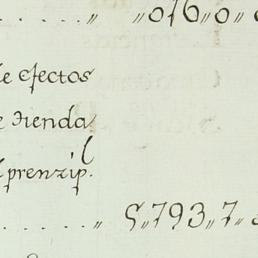 . . . . . „ „ 076„ 0„
e efectos
e tienda
l prenzip.l
. . . . . „ 5„ 793„ 7„